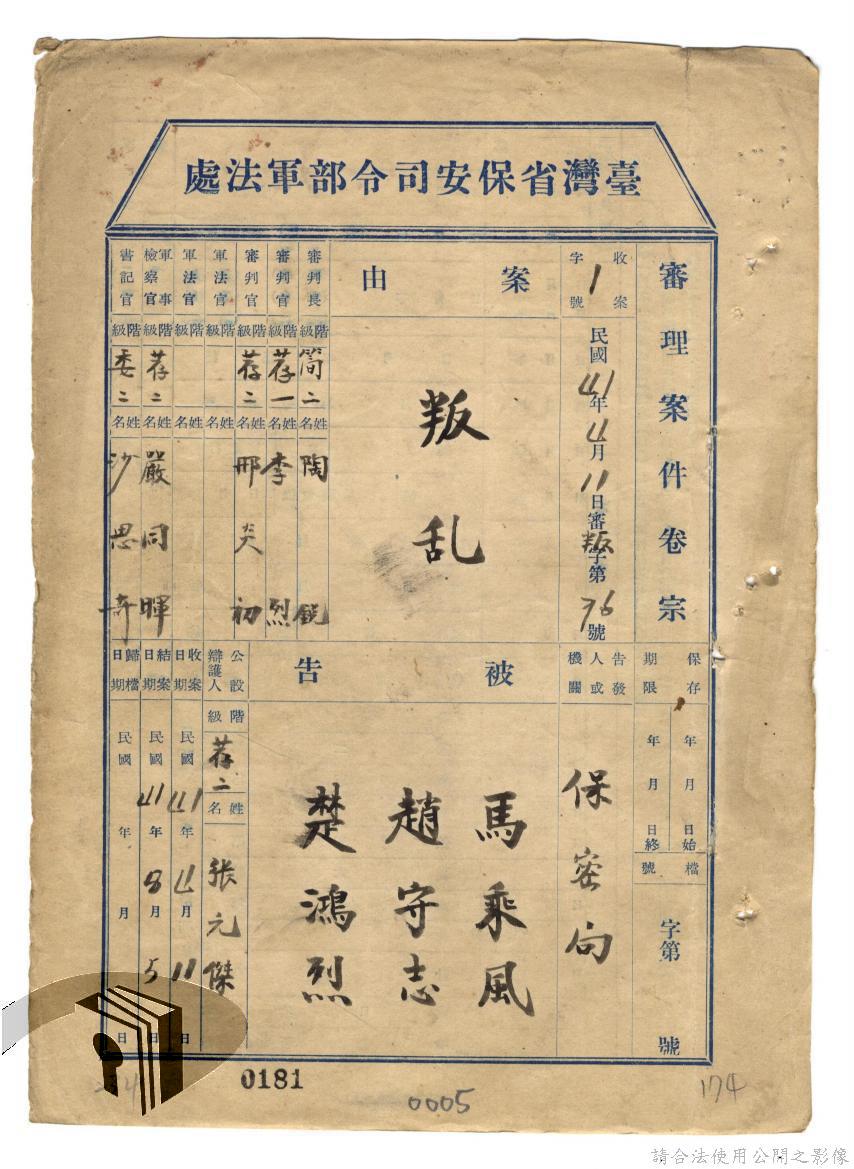 臺灣省保安司令部軍法處
審理案件卷宗
收案 1 字號
民國41年4月11日審叛字第76號
案由
叛乱
審判長 階級 簡二 姓名 陶銳
審判官 階級 荐一 姓名 李烈
審判官 階級 荐二 姓名 邢炎初
軍法官 階級 姓名
軍法官 階級 姓名
軍事檢察官 階級 荐二 姓名 嚴同暉
書記官 階級 委二 姓名 沙思奇
保存期限
年月日始
年月日終
檔號
字第 號
告發人或機關
保密局
被告
馬乘風
趙守志
楚鴻烈
公設辯護人 階級 荐二 姓名 張元傑
收案日期 民國41年4月11日
結案日期 民國41年8月5日
歸檔日期 民國 年 月 日
0181
0005
174
請合法使用公開之影像